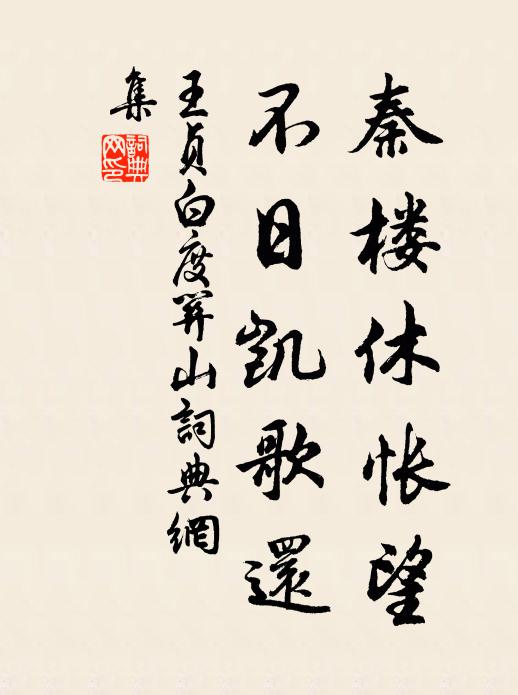 秦楼休怅望
不日凯歌還
王贞白度関山詞典網
集
詞典网印